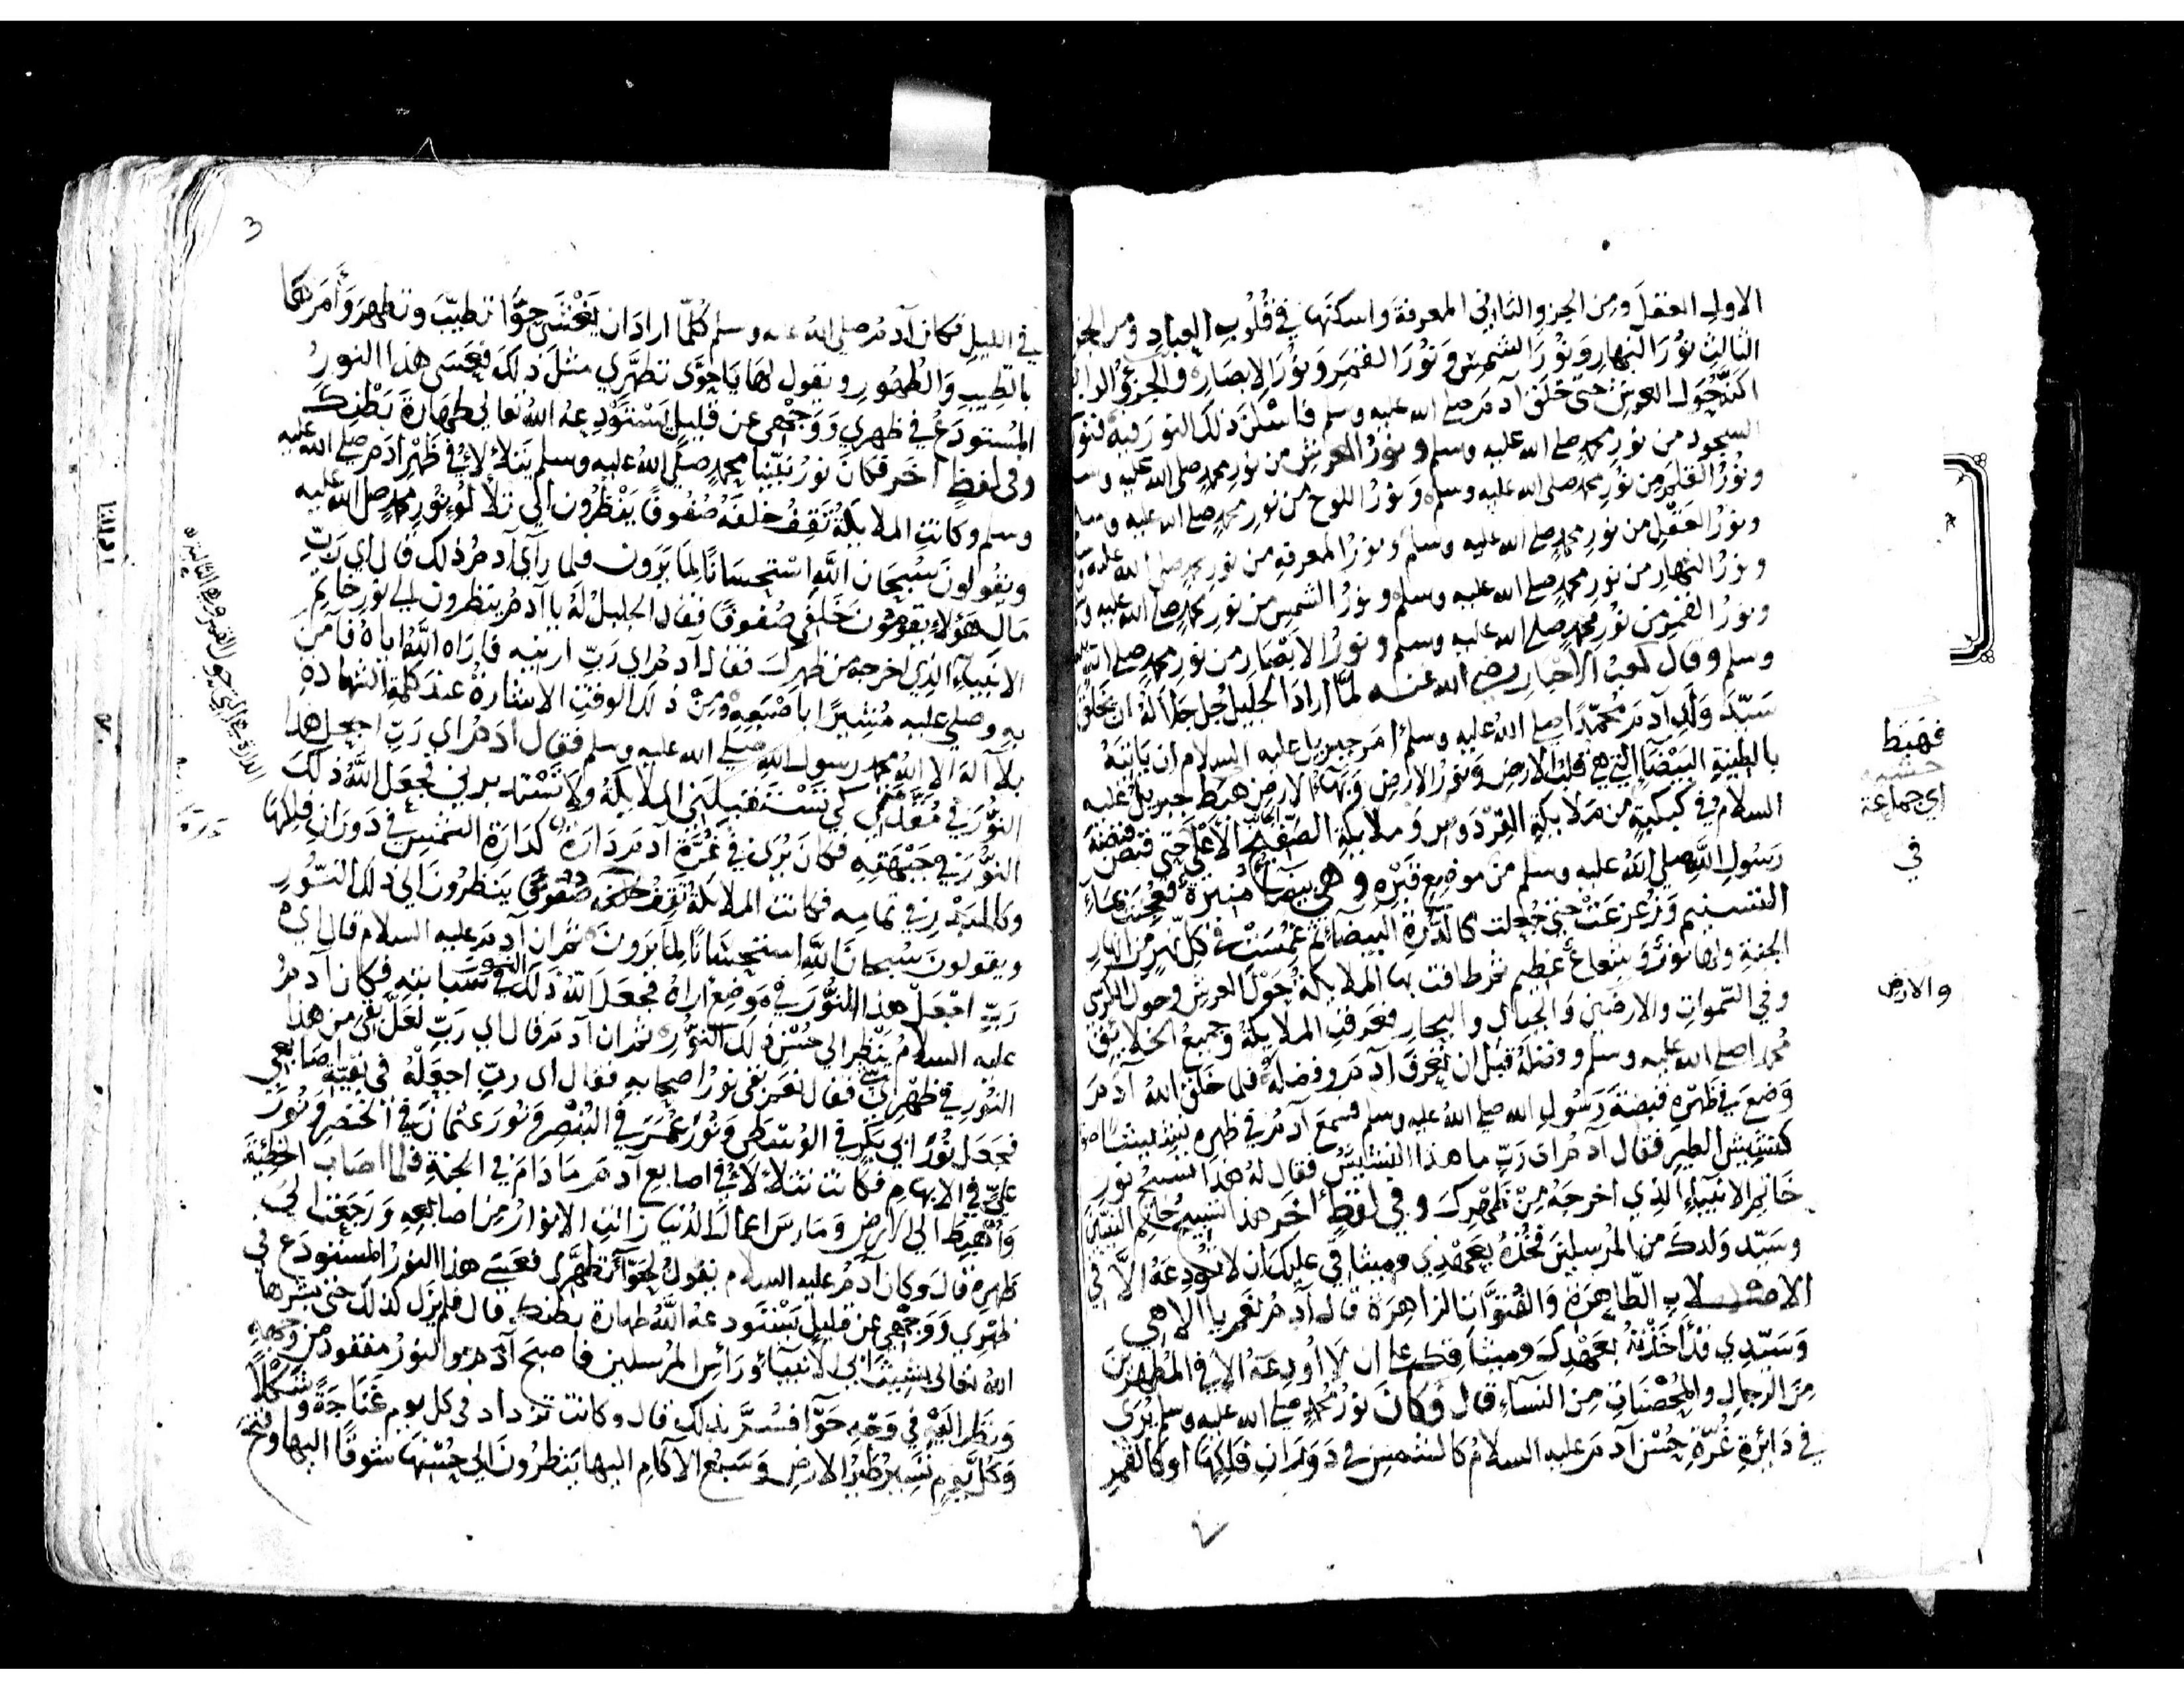 الاول العقل ومن الجزو الثاني المعرفة واسكنها في قلوب العباد ومن الجز
الثالث نور النهار ونور الشمس ونور القمر ونور الابصار والجزو الرابع
اكنه حول العرش حتى خلق آدم صلى الله عليه وسلم فاسكن ذلك النور فيه فنور
السجود من نور محمد صلى الله عليه وسلم ونور العرش من نور محمد صلى الله عليه وسلم
ونور القلم من نور محمد صلى الله عليه وسلم ونور اللوح من نور محمد صلى الله عليه وسلم
ونور العقل من نور محمد صلى الله عليه وسلم ونور المعرفة من نور محمد صلى الله عليه وسلم
ونور النهار من نور محمد صلى الله عليه وسلم ونور الشمس من نور محمد صلى الله عليه
ونور القمر من نور محمد صلى الله عليه وسلم ونور الابصار من نور محمد صلى الله عليه
وسلم وقال كعب الاحبار رضي الله عنه لما اراد الجليل جل جلاله ان يخلق
سيد ولد آدم محمدا صلى الله عليه وسلم امر جبريل عليه السلام ان ياتيه
بالطينة البيضا التي هي قلب الارض ونور الارض وبهاء الارض هبط جبريل عليه
السلام في كبكبة من ملايكة الفردوس وملايكة الصفيح الاعلى حتى قبض قبضة
رسول الله صلى الله عليه وسلم من موضع قبره وهي بيضاء منيرة فعجنت بماء
التسنيم وزعزعت حتى جعلت كالدرة البيضا ثم غمست في كل نهر من انهار
الجنة ولها نور وشعاع عظيم ثم طافت بها الملايكة حول العرش وحول الكرسي
وفي السموات والارضين والجبال والبحار فعرفت الملايكة وجميع الخلايق
محمدا صلى الله عليه وسلم وفضله قبل ان تعرف آدم وفضله فلما خلق الله آدم
وضع في ظهره قبضة رسول الله صلى الله عليه وسلم فسمع آدم في ظهره نشيشا
كنشيش الطير فقال آدم اي رب ما هذا النشيش فقال له هذا تسبيح نور
خاتم الانبياء الذي اخرجه من ظهرك وفي لفظ آخر هذا تسبيح خاتم النبيين
وسيد ولدك من المرسلين فخذه بعهدي وميثاقي عليك ان لا تودعه الا في
الاصلاب الطاهرة والقنوات الزاهرة قال آدم نعم يا الاهي
وسيدي قد اخذته بعهدك وميثاقك على ان لا اودعه الا في المطهرين
من الرجال والمحصنات من النساء قال فكان نور محمد صلى الله عليه وسلم يرى
في دائرة غرة حسن آدم عليه السلام كالشمس في دوران فلكها او كالقمر
فهبط
اي جماعة
في
والارض
3
في الليل فكان آدم صلى الله عليه وسلم كلما اراد ان يغشى حوا تطيب وتطهر وأمرها
بالطيب والطهور ويقول لها يا حوى تطهري مثل ذلك فعسى هذا النور
المستودع في ظهري ووجهي عن قليل يستودعه الله تعالى طهارة بطنك
وفي لفظ آخر فكان نور نبينا محمد صلى الله عليه وسلم يتلألأ في ظهر ادم صلى الله عليه
وسلم وكانت الملايكة تقف خلفه صفوفا ينظرون الى تلألؤ نور محمد صلى الله عليه
ويقولون سبحان الله استحسانا لما يرون فلما رآي آدم ذلك قال اي رب
مال هؤلاء يقومون خلفي صفوفا فقال الجليل له يا آدم ينظرون الى نور خاتم
الانبياء الذي اخرجه من ظهرك فقال آدم اي رب ارنيه فاراه الله اياه فآمن
به وصلى عليه مشيرا باصبعه ومن ذلك الوقت الاشارة عند كلمة الشهادة
بلا آله الا الله محمد رسول الله صلى الله عليه وسلم فقال آدم اي رب اجعل هذا
النور في مقدمي كي تستقبلني الملايكة ولا تستدبرني فجعل الله ذلك
النور في جبهته فكان يرى في غرة آدم دارة كدارة الشمس في دوران فلكها
وكالبدر في تمامه فكانت الملايكة تقف خلفه صفوفا ينظرون الى ذلك النور
ويقولون سبحان الله استحسانا لما يرون ثم ان آدم عليه السلام قال اي
رب اجعل هذا النور في موضع اراه فجعل الله ذلك النور في سبابته فكان آدم
عليه السلام ينظر الى حسن ذلك النور ثم ان آدم قال اي رب هل بقي من هذا
النور في ظهري شي فقال نعم بقي نور اصحابه فقال اي رب اجعله في بقية اصابعي
فجعل نور ابي بكر في الوسطى ونور عمر في البنصر ونور عثمان في الخنصر ونور
علي في الابهام فكانت تتلألأ في اصابع آدم ما دام في الجنة فلما اصاب الخطيئة
وأهبط الى الارض ومارس اعمال الدنيا زالت الانوار من اصابعه ورجعت الى
ظهره قال وكان آدم عليه السلام يقول لحوآ تطهري فعسى هذا النور المستودع في
ظهري ووجهي عن قليل يستودعه الله طهارة بطنك قال فلم يزل كذلك حتى بشرها
الله تعالى بشيث ابي الانبياء ورأس المرسلين فاصبح آدم والنور مفقود من وجهه
ونظر اليه في وجه حوآ فسر بذلك قال وكانت تزداد في كل يوم غناجة وشكلا
وكل يوم تسير طير الارض وسبع الآكام اليها ينظرون الى حسنها شوقا اليها
الدارة هي التي حول القمر وهي الهالة